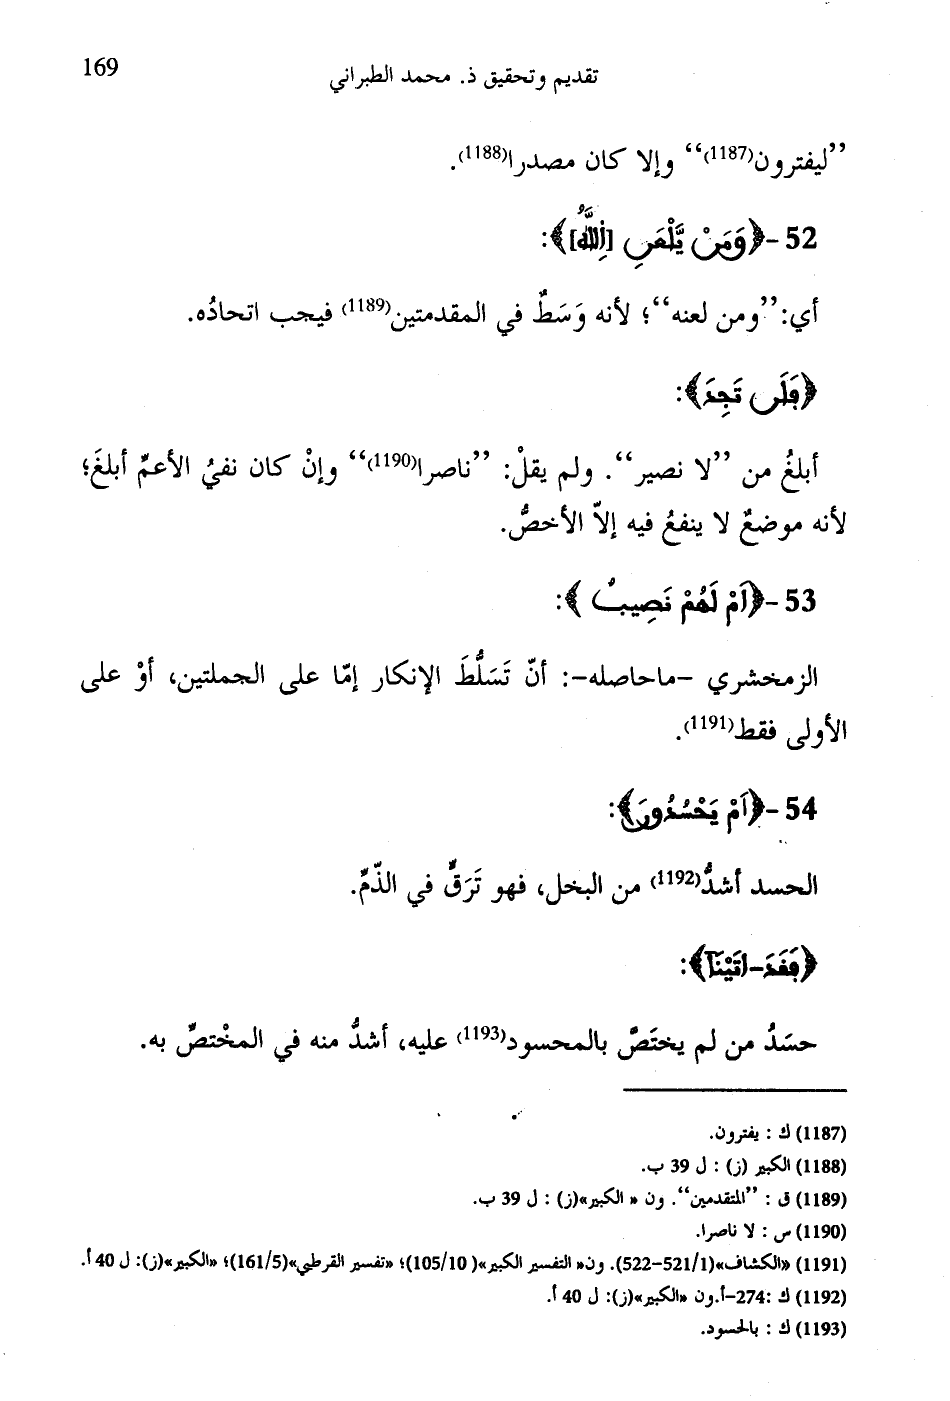 تقديم وتحقيق ذ. محمد الطبراني 169
”ليفترون(1187)“ وإلا كان مصدرا(1188).
52 -﴿وَمَنْ يَّلْعَنِ [اِللَّهُ]﴾:
أي:”ومن لعنه“؛ لأنه وَسَطٌ في المقدمتين(1189) فيجب اتحادُه.
﴿فَلَن تَجِدَ﴾:
أبلغُ من ”لا نصير“. ولم يقلْ: ”ناصرا(1190)“ وإنْ كان نفيُ الأعمِّ أبلغَ؛
لأنه موضعٌ لا ينفعُ فيه إلاّ الأخصُّ.
53 -﴿اَمْ لَهُمْ نَصِيبٌ ﴾:
الزمخشري -ماحاصله-: أنّ تَسَلُّطَ الإنكار إمّا على الجملتين، أوْ على
الأولى فقط(1191).
54 -﴿اَمْ يَحْسُدُونَ﴾:
الحسد أشدُّ(1192) من البخل، فهو تَرَقٍّ في الذّمِّ.
﴿فَقَدَ-اتَيْنَآ﴾:
حسَدُ من لم يختَصَّ بالمحسود(1193) عليه، أشدُّ منه في المخْتصِّ به.
(1187) ك : يفترون.
(1188) الكبير (ز) : ل 39 ب.
(1189) ق : ”المتقدمين“. ون « الكبير»(ز) : ل 39 ب.
(1190) س : لا ناصرا.
(1191) «الكشاف»(521/1-522). ون« التفسير الكبير»( 105/10)؛ «تفسير القرطبي»(161/5)؛ «الكبير»(ز): ل 40 أ.
(1192) ك :274-أ.ون «الكبير»(ز): ل 40 أ.
(1193) ك : بالحسود.